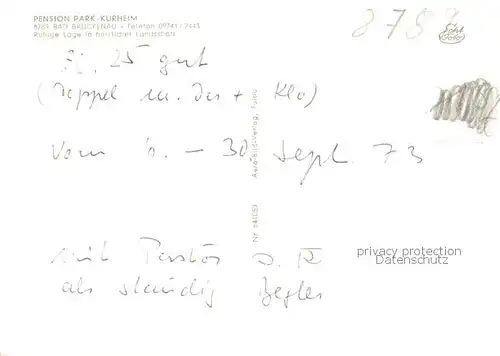 PENSION PARK-KURHEIM
8789 BAD BRÜCKENAU - Telefon 09741/2445
Ruhige Lage in herrlicher Landschaft
878
Echt Foto
Zi. 25 gut
(Doppel m. Du + Klo)
vom 6. - 30. Sept. 73
Aero-Bild-Verlag, Fulda
Nr.
mit Pastor D. R
als ständig
privacy protection
Datenschutz